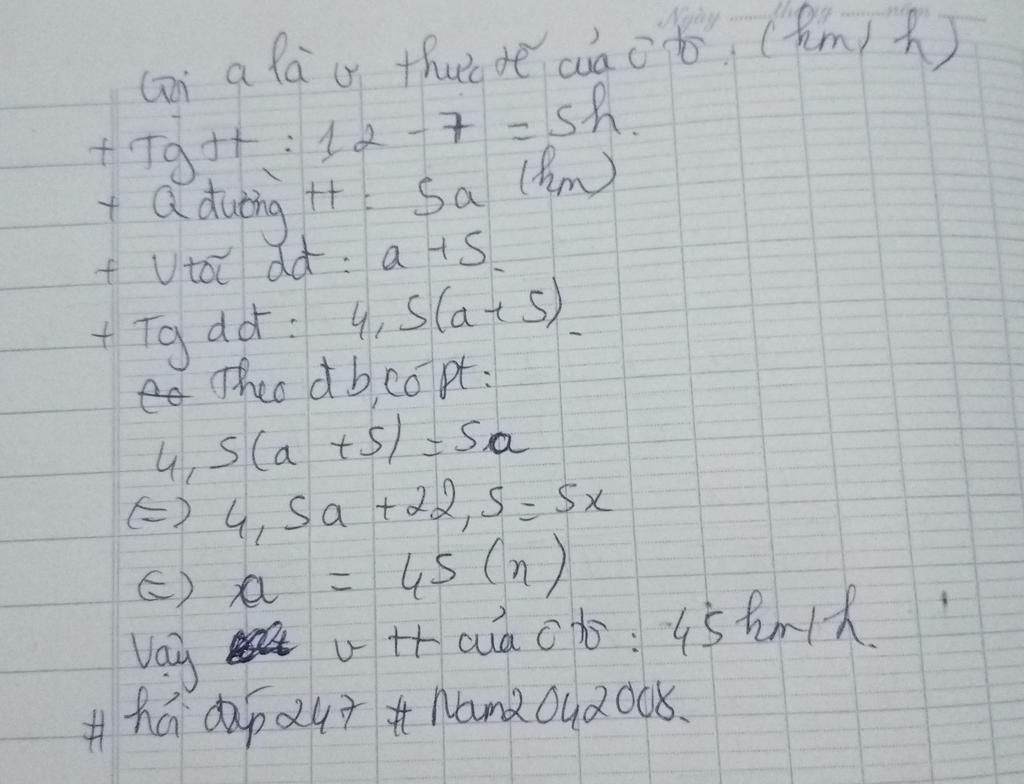 Ngày tháng năm
Gọi a là v thực tế của ô tô. (km/h)
+ Tg tt : 12 - 7 = 5h.
+ Q đường tt : 5a (km)
+ V tốc dđ : a + 5.
+ Tg dđ : 4,5(a + 5).
Theo đb, có pt:
4,5(a + 5) = 5a
⇔ 4,5a + 22,5 = 5x
⇔ a = 45 (n)
Vậy v tt của ô tô : 45 km/h.
# hỏi đáp 247 # Nam2042008.